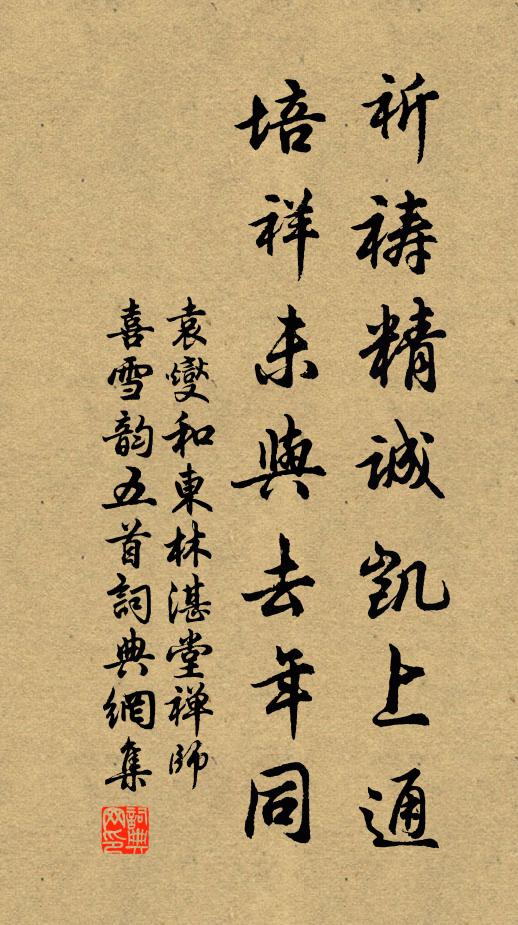 祈禱精誠凱上通
培祥未與去年同
袁燮和東林湛堂禅師
喜雪韵五首詞典網集
詞典网印